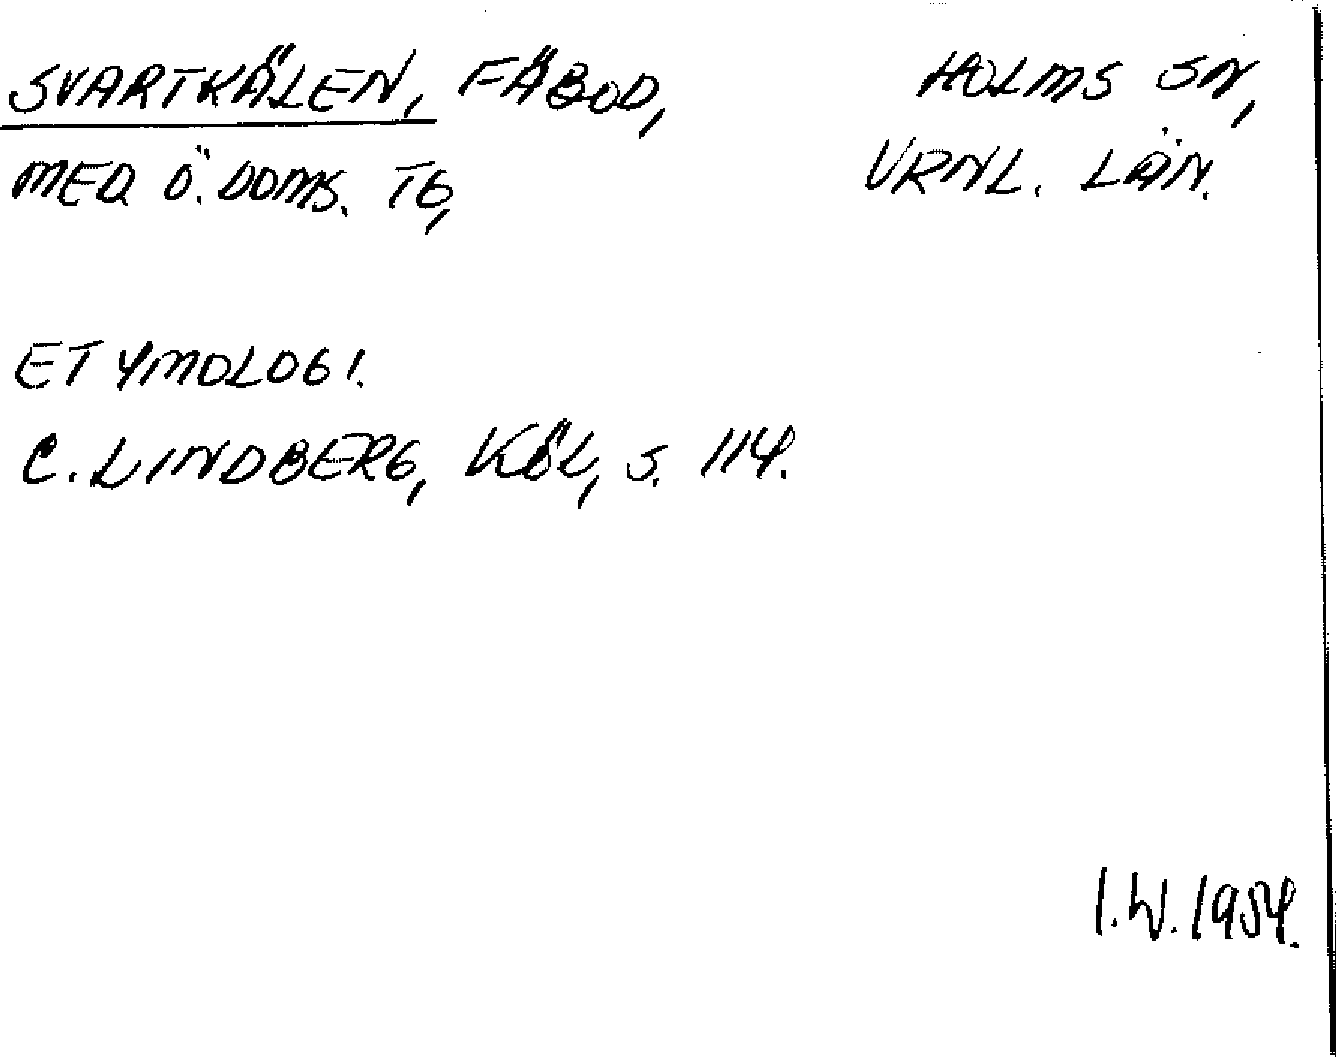 SVARTKÄLEN, FÄBOD, HOLMS SN,
MED Ö. DOMS. TG, VRNL. LÄN.
ETYMOLOGI.
C. LINDBERG, KÖL, S. 114.
I.W. 1954.